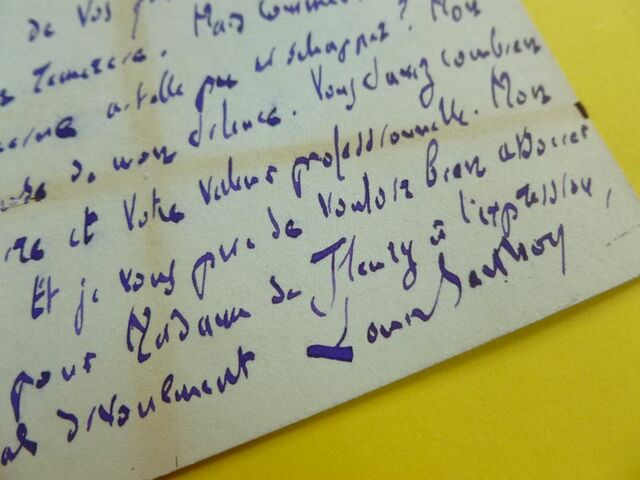 de vos
Mais comment
a-t-elle pu m'échapper ? Mon
de mon silence. Vous savez combien
et votre valeur professionnelle. Mon
Et je vous prie de vouloir bien associer
pour Madame de Fleury à l'expression,
dévouement Louis Barthou